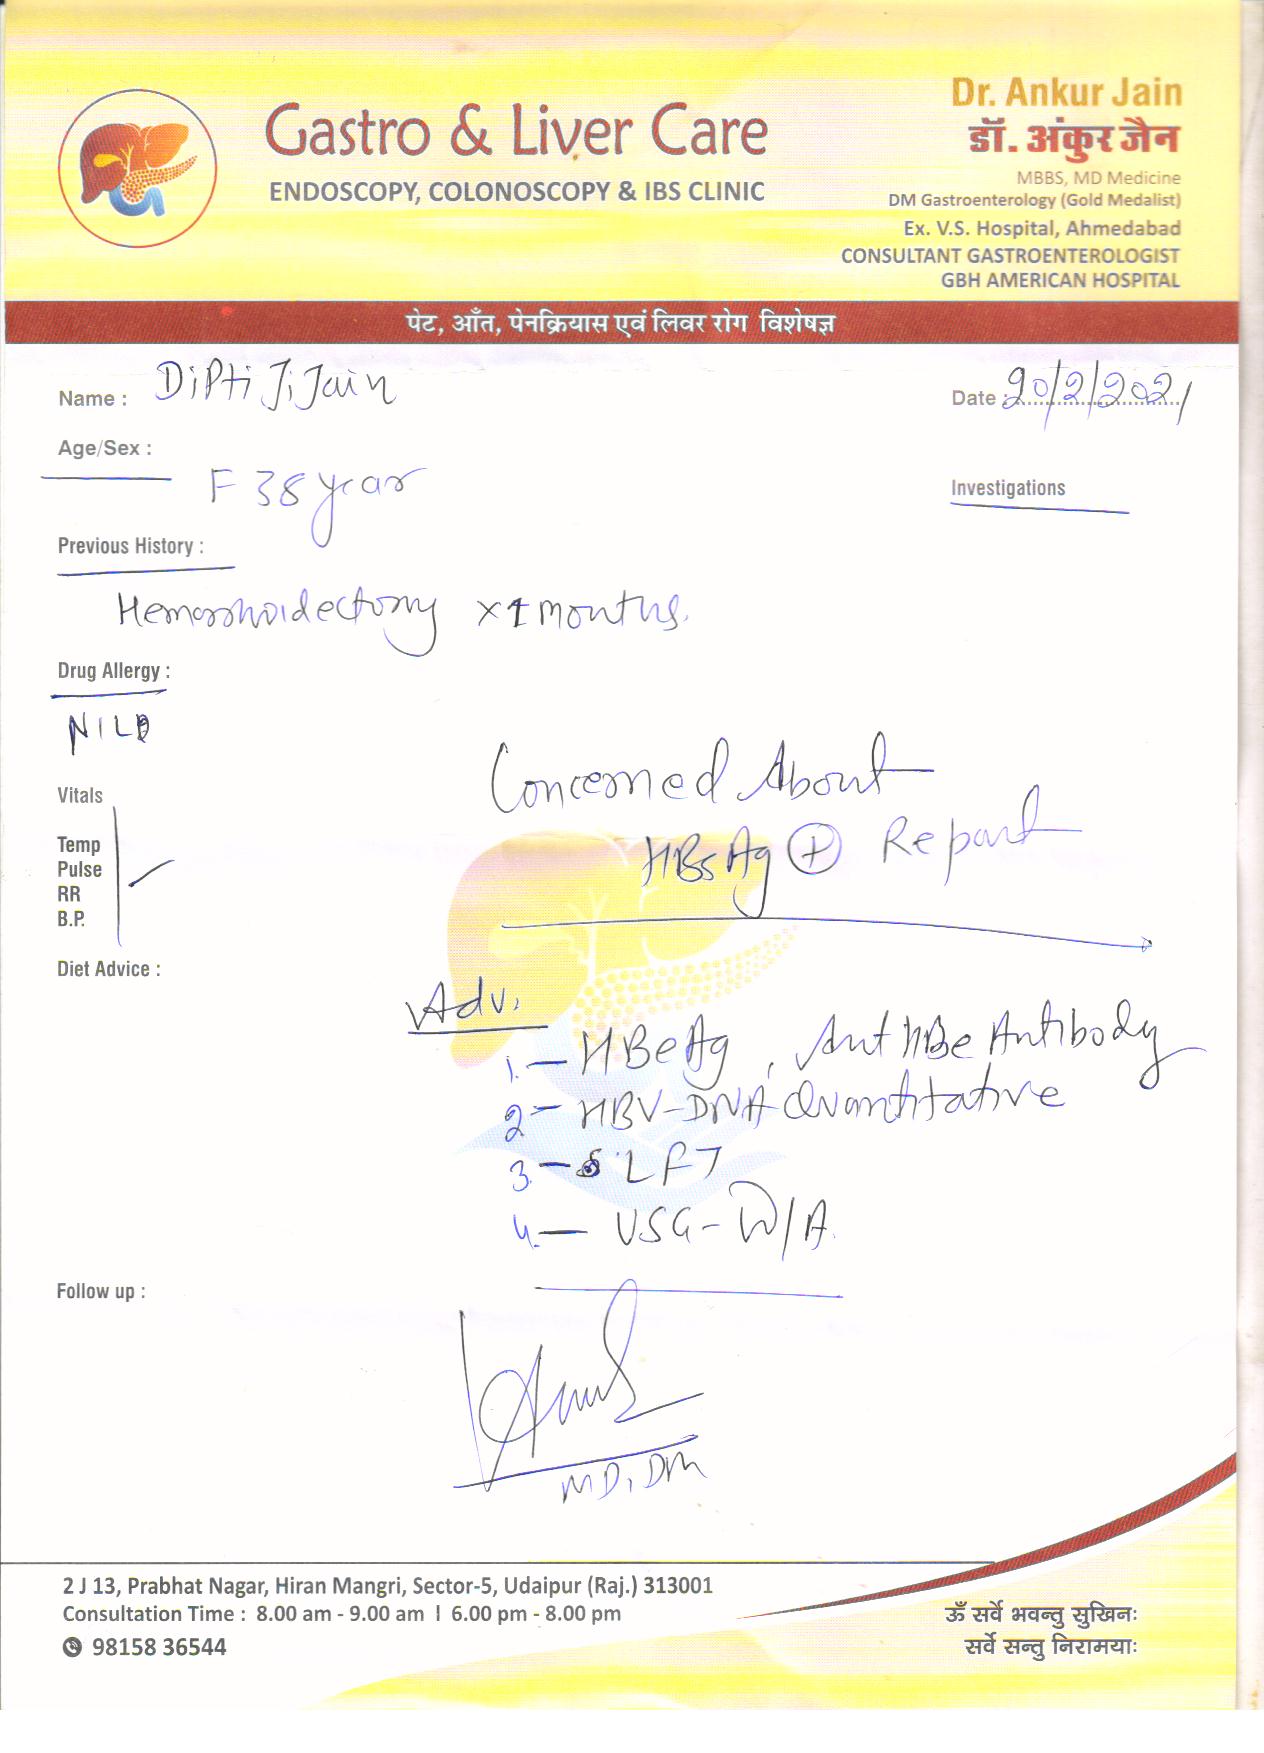 Gastro & Liver Care
ENDOSCOPY, COLONOSCOPY & IBS CLINIC
Dr. Ankur Jain
डॉ. अंकुर जैन
MBBS, MD Medicine
DM Gastroenterology (Gold Medalist)
Ex. V.S. Hospital, Ahmedabad
CONSULTANT GASTROENTEROLOGIST
GBH AMERICAN HOSPITAL
पेट, आँत, पेनक्रियास एवं लिवर रोग विशेषज्ञ
Name : Dipti Ji Jain
Date : 20/2/2021
Age/Sex :
F 38 year
Investigations
Previous History :
Hemorrhoidectomy x 1 months.
Drug Allergy :
NIL
Vitals
Concerned About
Temp
HBsAg (+) Report
Pulse
RR
B.P.
Diet Advice :
Adv.
1. — HBeAg, Ant HBe Antibody
2 — HBV-DNA Quantitative
3. — LFT
4. — USG - W/A
Follow up :
MD, DM
2 J 13, Prabhat Nagar, Hiran Mangri, Sector-5, Udaipur (Raj.) 313001
Consultation Time : 8.00 am - 9.00 am I 6.00 pm - 8.00 pm
98158 36544
ॐ सर्वे भवन्तु सुखिनः
सर्वे सन्तु निरामयाः